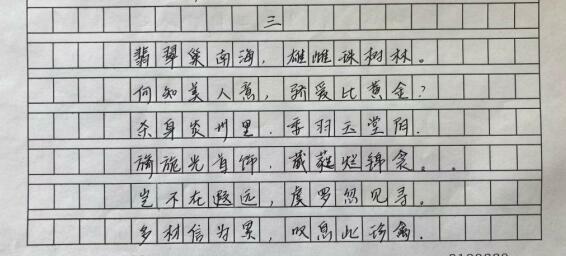 三
翡翠巢南海，雄雌珠树林。
何知美人意，骄爱比黄金？
杀身炎州里，委羽玉堂阴。
旖旎光首饰，葳蕤烂锦衾。
岂不在遐远，虞罗忽见寻。
多材信为累，叹息此珍禽。